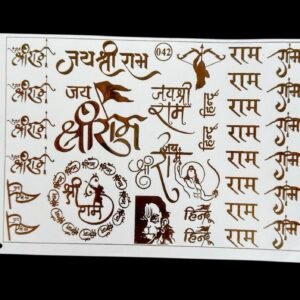 जय श्री राम
042
श्रीराम
श्रीराम
श्रीराम
श्रीराम
जय
श्रीराम
जय श्री
राम
हिन्दू
हिन्दू
जय
श्री राम
श्री
राम
हिन्दू
हिन्दू
राम राम
राम राम
राम राम
राम राम
राम राम
राम राम
राम राम
राम राम